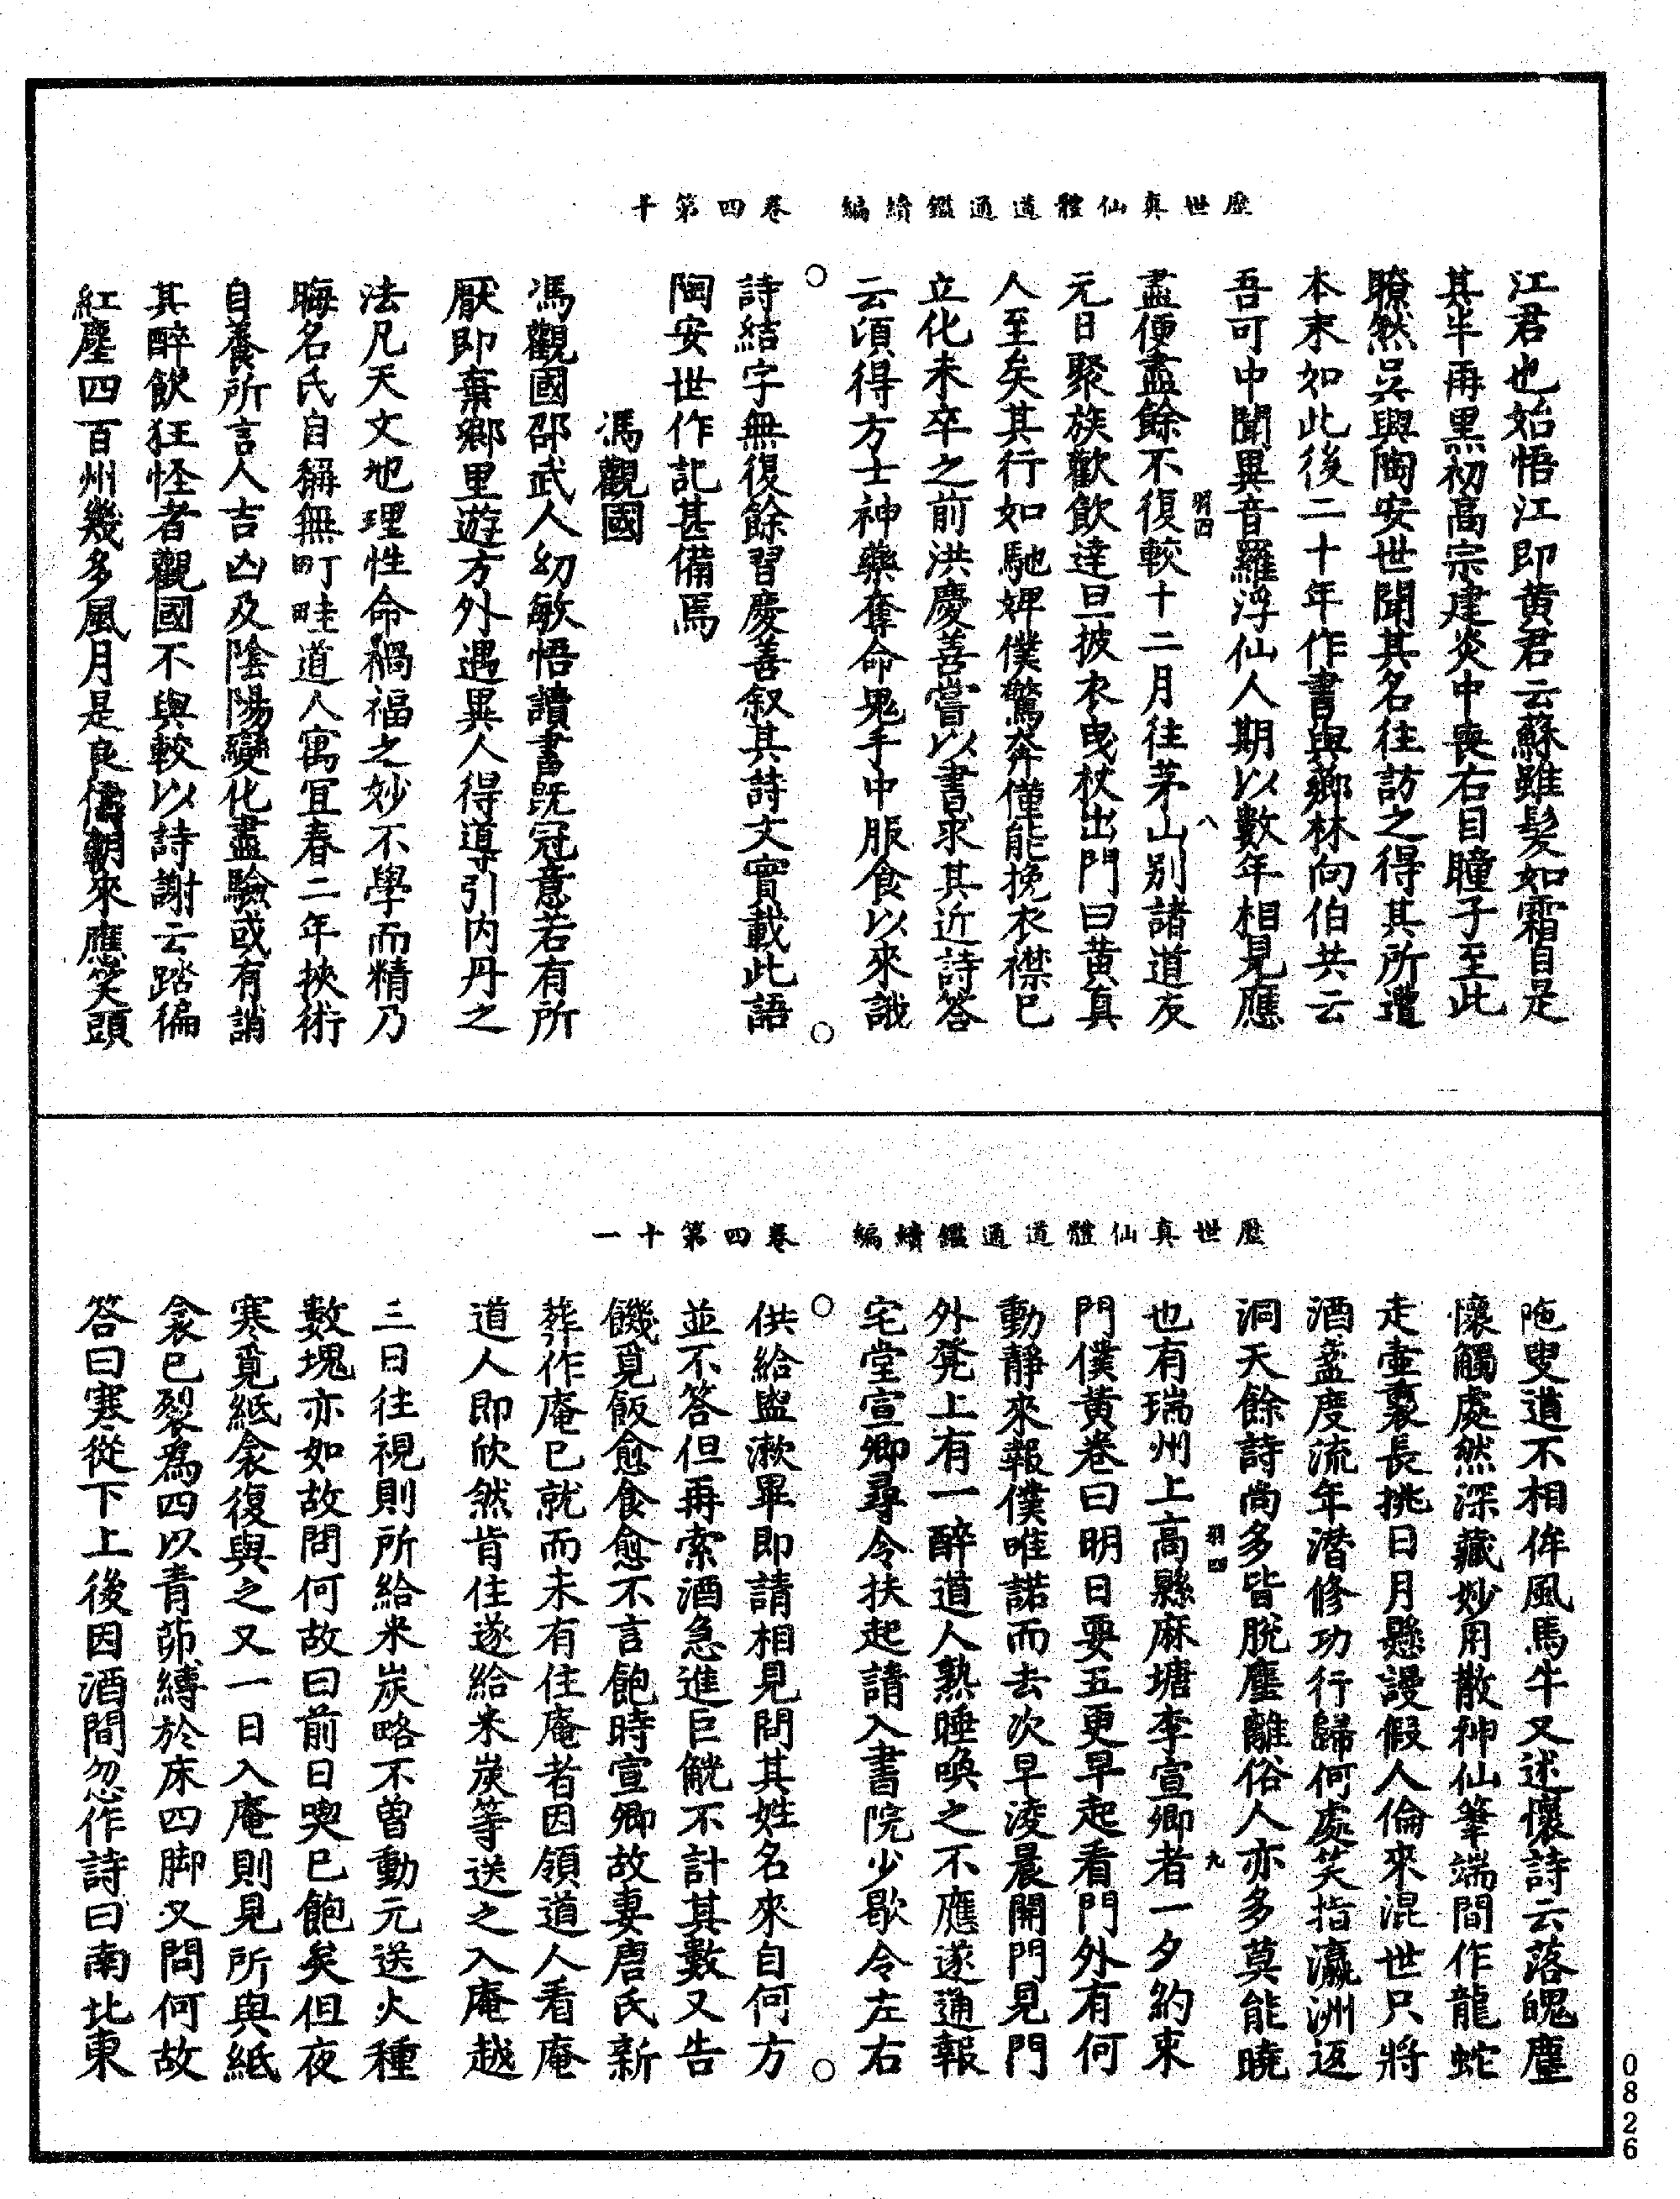 歷世真仙體道通鑑續編　卷四第十
江君也始悟江即黄君云蘇雖髮如霜自是
其半再黑初高宗建炎中喪右目瞳子至此
瞭然吳興陶安世聞其名往訪之得其所遭
本末如此後二十年作書與薌林向伯共云
吾可中聞異音羅浮仙人期以數年相見應
羽四　八
盡便盡餘不復較十二月往茅山别諸道友
元日聚族歡飲達旦披衣曳杖出門曰黄真
人至矣其行如馳婢僕驚奔僅能挽衣襟已
立化未卒之前洪慶善嘗以書求其近詩答
云頃得方士神藥奪命鬼手中服食以來誐
詩結字無復餘習慶善叙其詩文實載此語
陶安世作記甚備焉
馮觀國
馮觀國邵武人幼敏悟讀書既冠意若有所
厭即棄鄉里遊方外遇異人得導引内丹之
法凡天文地理性命禍福之妙不學而精乃
晦名氏自稱無町畦道人寓宜春二年挾術
自養所言人吉凶及陰陽變化盡驗或有誚
其醉飲狂怪者觀國不與較以詩謝云踏徧
紅塵四百州幾多風月是良儔朝來應笑頭
歷世真仙體道通鑑續編　卷四第十一
陁叟道不相侔風馬牛又述懷詩云落魄塵
懷觸處然深藏妙用散神仙筆端間作龍蛇
走壷裏長挑日月懸謾假人倫來混世只將
酒盞度流年潜修功行歸何處笑指瀛洲返
洞天餘詩尚多皆脱塵離俗人亦多莫能曉
羽四　九
也有瑞州上高縣麻塘李宣卿者一夕約束
門僕黄巻曰明日要五更早起看門外有何
動靜來報僕唯諾而去次早凌晨開門見門
外凳上有一醉道人熟睡喚之不應遂通報
宅堂宣卿尋令扶起請入書院少歇令左右
供給盥漱畢即請相見問其姓名來自何方
並不答但再索酒急進巨觥不計其數又告
饑覓飯愈食愈不言飽時宣卿故妻唐氏新
葬作庵已就而未有住庵者因領道人看庵
道人即欣然肯住遂給米炭等送之入庵越
三日往視則所給米炭略不曾動元送火種
數塊亦如故問何故曰前日喫已飽矣但夜
寒覓紙衾復與之又一日入庵則見所與紙
衾已裂為四以青茆縛於床四脚又問何故
答曰寒從下上後因酒間忽作詩曰南北東
0826